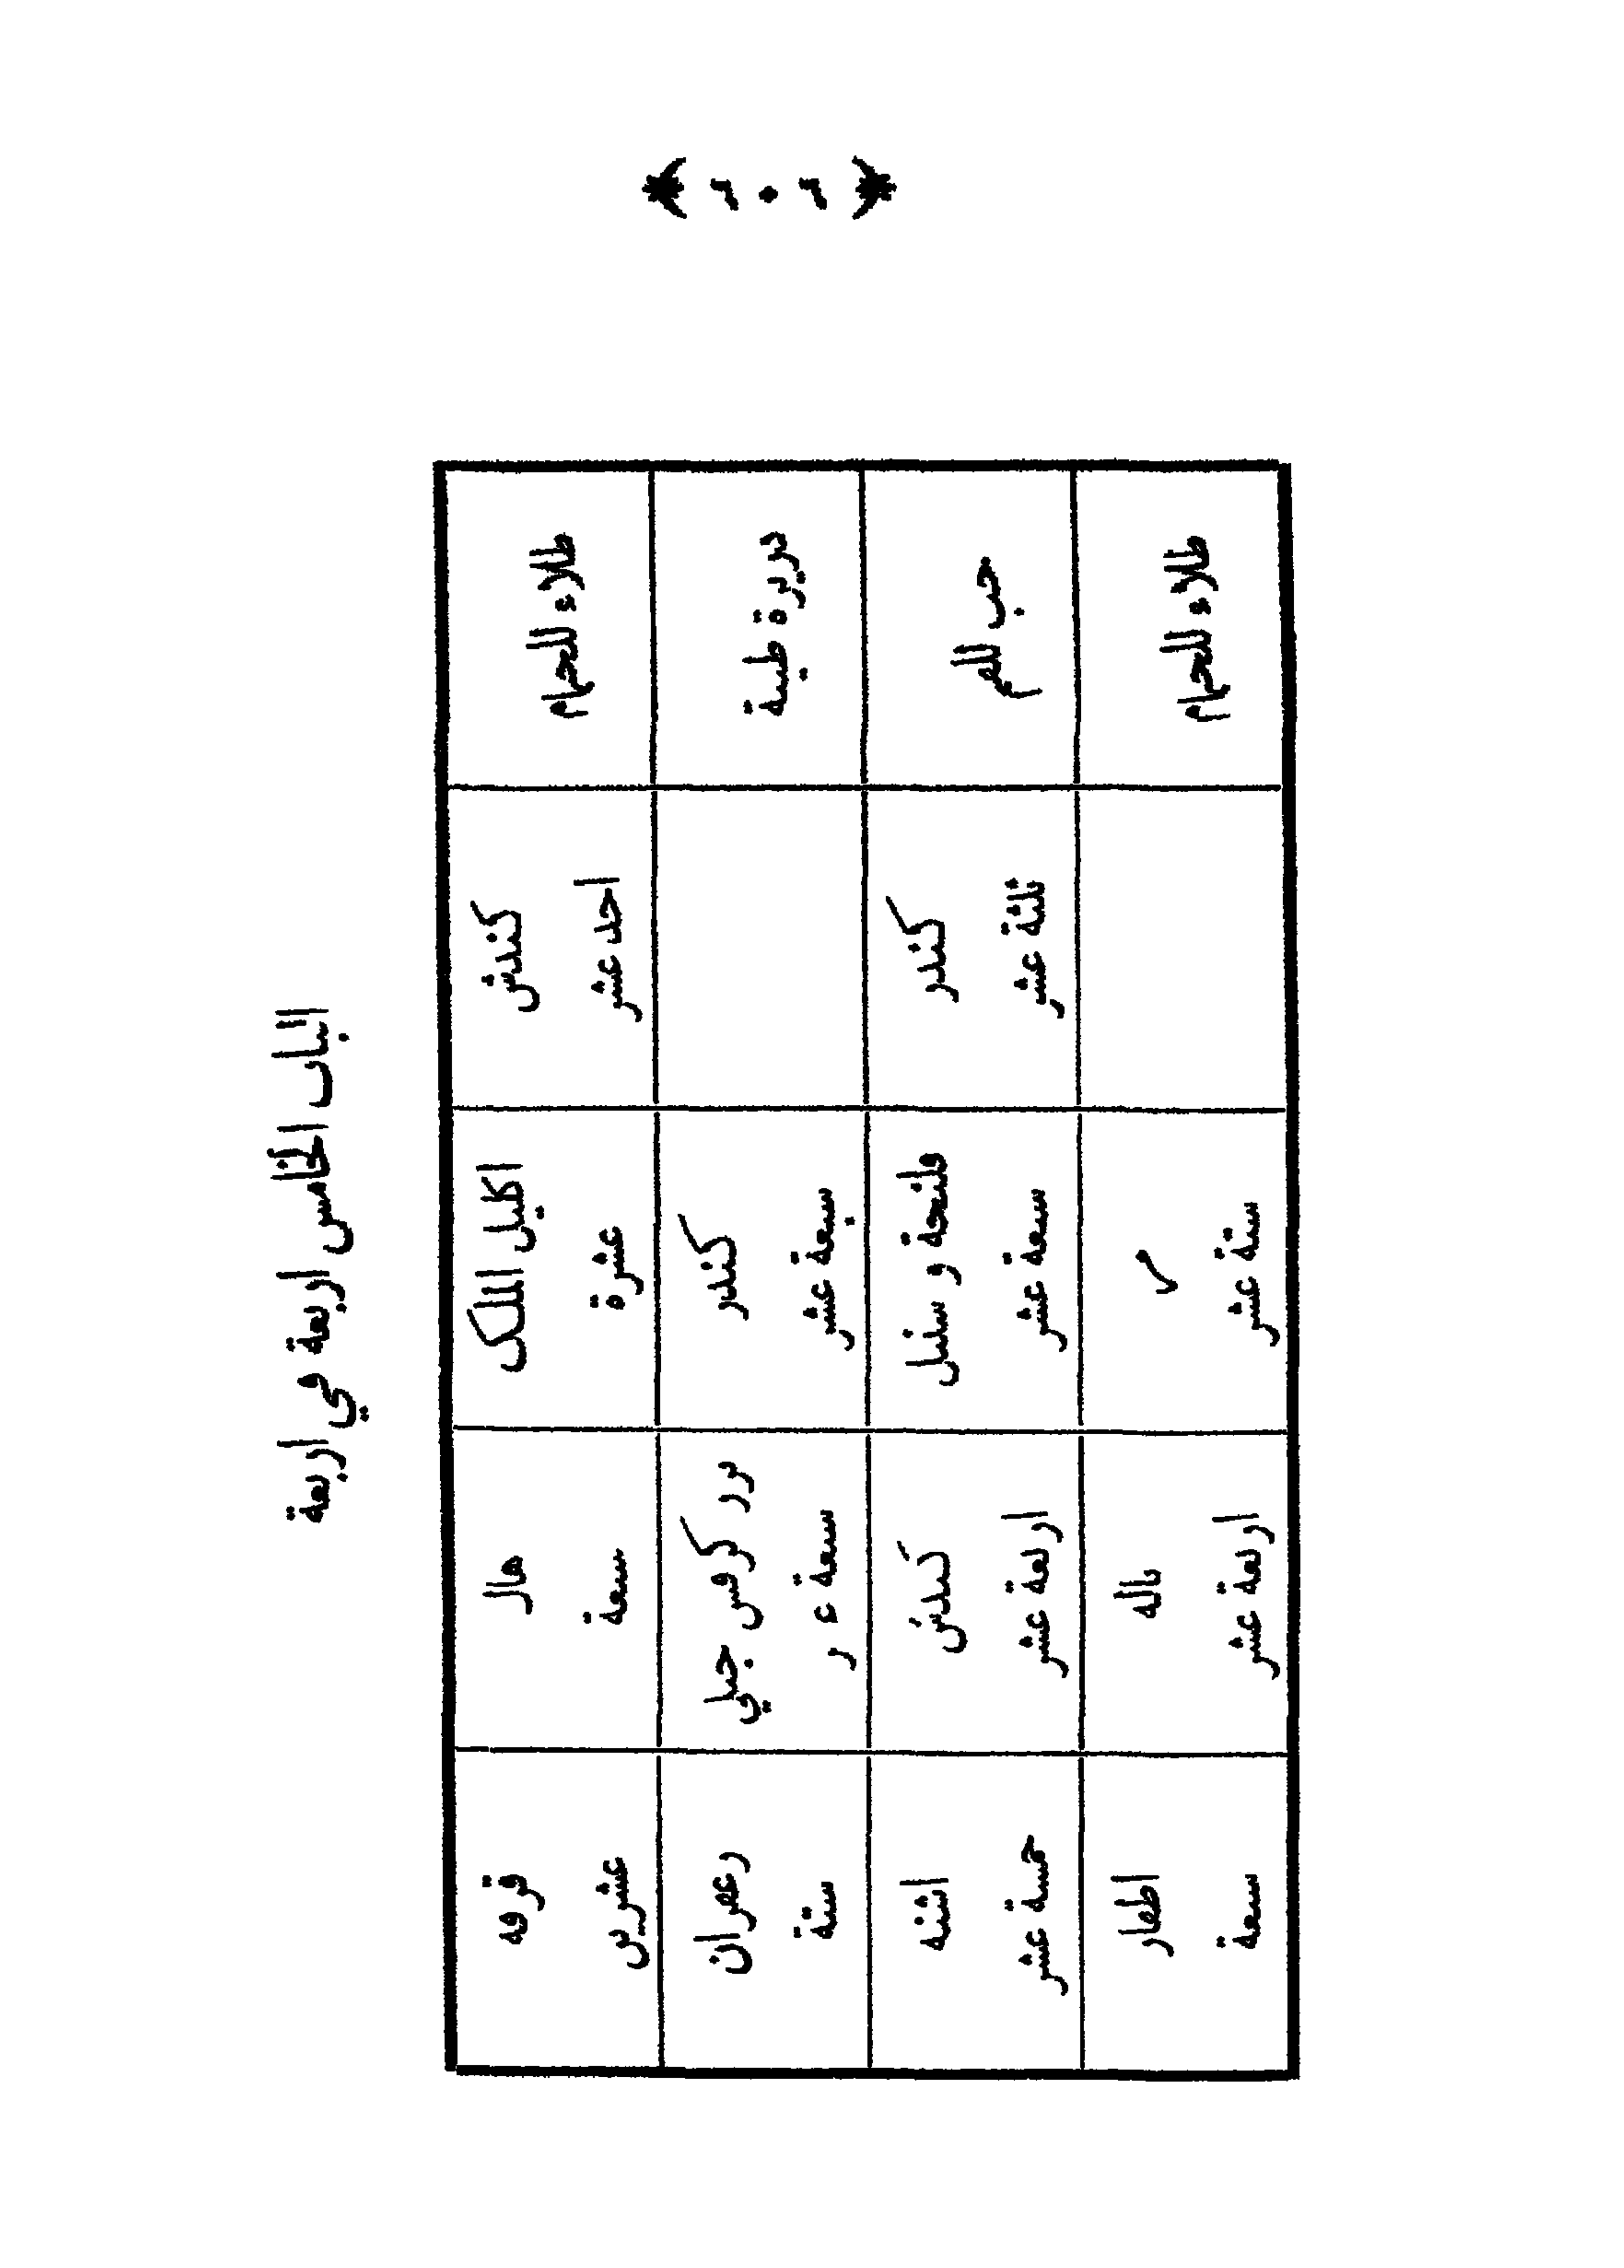 الباب الخامس اربعة في اربعة
طلاء للحمام
كندش
احد عشر
اكليل الملك
عشرة
هال
سعة
قرفه
عشرين
دريرة طيبة
كندر
سبعة عشر
برر كرفس جبلي
سعة ع ر
رعفران
ستة
حب للفم
كندر
ثلثة عشر
فلنجة و سنبل
سعة عشر
كندش
اربعة عشر
اشنه
خمسة عشر
طلاء للحمام
مر
ستة عشر
باله
اربعة عشر
اطفار
سعة